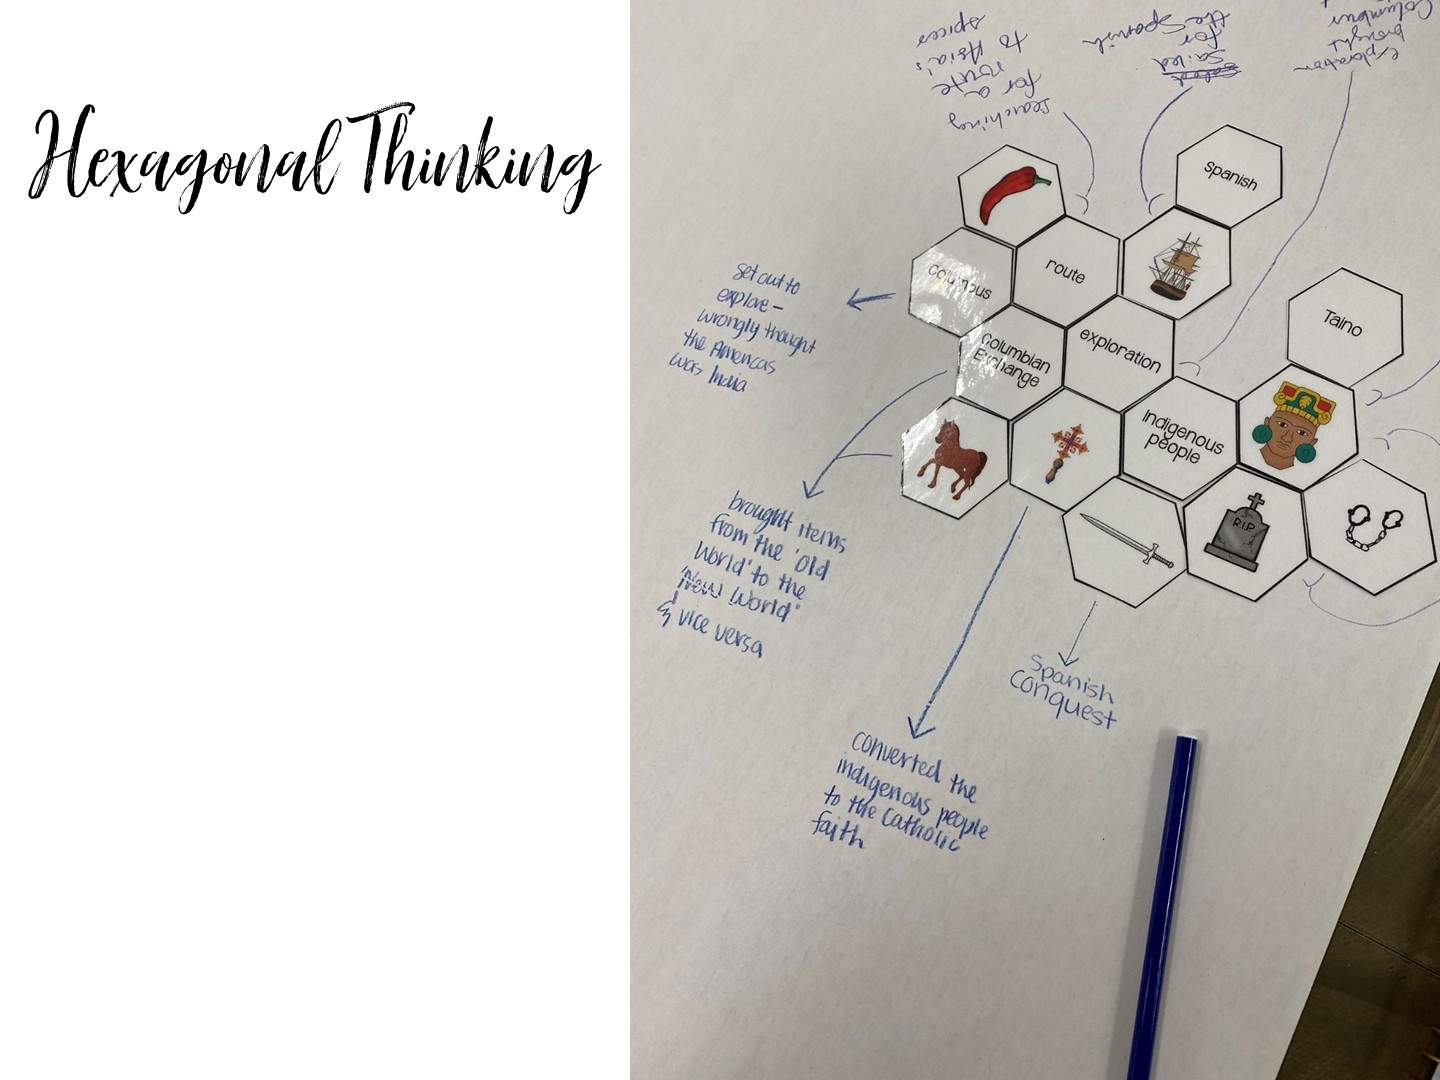 Hexagonal Thinking
searching
for a
route
to Asia's
spices
sailed
for
the Spanish
exploration
brought
Columbus
spanish
columbus
route
Taino
Columbian
Exchange
exploration
Indigenous
people
R.I.P
set out to
explore –
wrongly thought
the Americas
was India
brought items
from the 'old
World' to the
"New World"
& vice versa
Spanish
Conquest
converted the
indigenous people
to the Catholic
faith